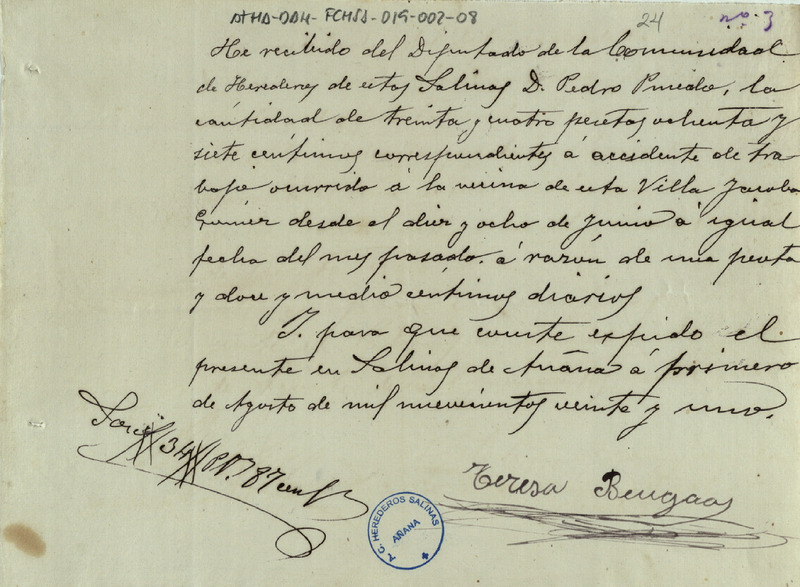 ATHA-DAH-FCHSS-019-002-08
24
nº 3
He recibido del Diputado de la Comunidad
de Herederos de estas Salinas D. Pedro Pinedo, la
cántidad de treinta y cuatro pesetas ochenta y
siete céntimos correspondientes á accidente de tra
bajo ocurrido á la vecina de esta Villa Jacoba
desde el diez y ocho de Junio á igual
fecha del mes pasado. á razón de una peseta
y doce y medio céntimos diarios
Y. para que conste expido el
presente en Salinas de Añana á primero
de Agosto de mil nuevecientos veinte y uno.
Son 34 Pts. 87 cents
Teresa
A. C. HEREDEROS SALINAS
AÑANA